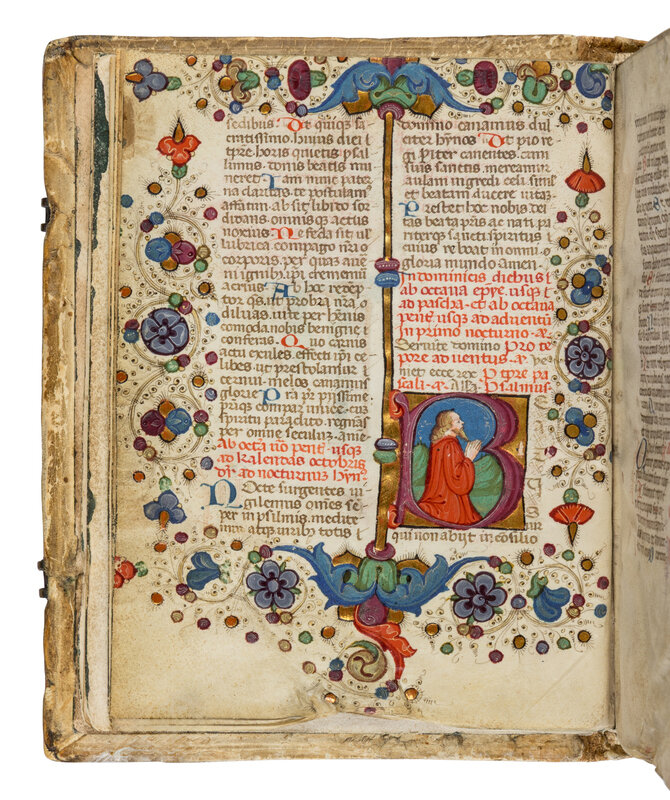 sedibus. Ut quiq; sa
cratissimo. huius diei t
pre. horis quietis psal
limus. donis beatis mu
neret. Iam nunc pater
na claritas. te postulam
affatim. absit libido sor
didans. omnisq; actus
noxius. Ne feda sit ul
lubrica. compago nri
corporis. per quas aver
ni ignib. ipi crememur
acrius. Ab hoc redep
tor qs. ut probra nra.
diluas. vite per hennis
comoda nobis benigne t
conferas. Quo carnis
actu exules. effecti ipi ce
libes. ut prestolamur
cernui. melos canamus
glorie. Pra pr piissime
prisq; compar unice. cu
spiritu paraclito. regnas
per omne seculum. ame
Ab octa no pent. usq;
ad kalendas octobris
dy. ad nocturnum hyn.
Nocte surgentes vi
gilemus omes. se
per in psalmis. medite
mur atq; virib totis t
domino canamus dul
citer hynos. Ut pio re
gi piter canentes. cum
suis sanctis. mereamur
aulam ingredi celi. simul
et beatam ducere vitam.
Prestet hoc nobis dei
tas beata pris ac nati pa
riterq; sancti spiritus
cuius reboat in omni.
gloria mundo amen.
In dominicis diebus t
ab octaua epye. usq; t
ad pascha. et ab octaua
pent. usq; ad aduentu
In primo nocturno. ae.
Servite domino. Pro te
pore aduentus. ae. Ve
niet ecce rex. P tpre pa
scali. ae. Alla. Psalmus
B
qui non abijt in cosilio